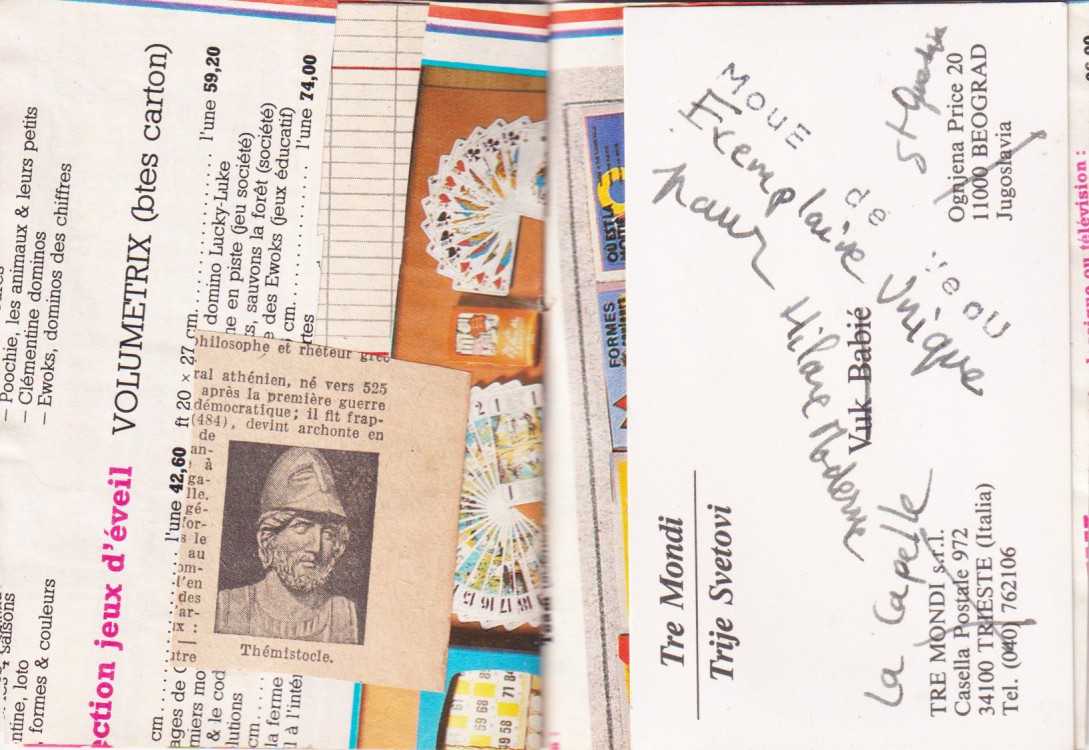 – Poochie, les animaux & leurs petits
– Clémentine dominos
– Ewoks, dominos des chiffres
saisons
ntine, loto
formes & couleurs
ction jeux d'éveil
VOLUMETRIX (btes carton)
cm l'une 42,60
ft 20 × 27 cm l'une 59,20
domino Lucky-Luke
en piste (jeu société)
sauvons la forêt (société)
des Ewoks (jeux éducatif)
cm l'une 74,00
ages de
miers mo
& le cod
lutions
cm
la ferme
à l'inté
philosophe et rhéteur grec
ral athénien, né vers 525
après la première guerre
démocratique; il fit frap-
(484), devint archonte en
de
an-
à
ga-
lle.
gé-
for-
s le
au
om-
l'en
des
ar-
ux :
utre
Thémistocle.
59 68
49 58
71 84
QU'EST LA
FORMES
Tre Mondi
Trije Svetovi
Vuk Babić
TRE MONDI s.r.l.
Casella Postale 972
34100 TRIESTE (Italia)
Tel. (040) 762106
Ognjena Price 20
11000 BEOGRAD
Jugoslavia
MOUE
de
ou
Exemplaire Unique
pour Hilare Moderne
La Capelle
St Quentin
ou télévision :